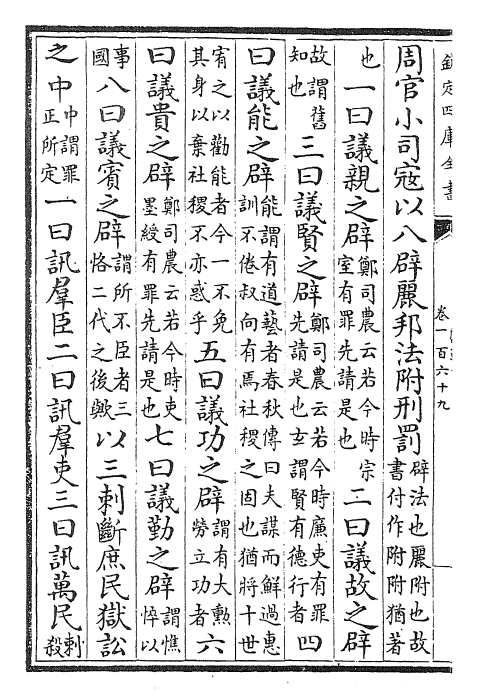 欽定四庫全書
卷一百六十九
周官小司寇以八辟麗邦法附刑罰辟法也麗附也故書付作附附猶著
也一曰議親之辟鄭司農云若今時宗室有罪先請是也二曰議故之辟
故謂舊知也三曰議賢之辟鄭司農云若今時廉吏有罪先請是也玄謂賢有德行者四
曰議能之辟能謂有道藝者春秋傳曰夫謀而鮮過惠訓不倦叔向有焉社稷之固也猶將十世
宥之以勸能者今一不免其身以棄社稷不亦惑乎五曰議功之辟謂有大勳勞立功者六
曰議貴之辟鄭司農云若今時吏墨綬有罪先請是也七曰議勤之辟謂憔悴以
事國八曰議賓之辟謂所不臣者三恪二代之後歟以三刺斷庶民獄訟
之中中謂罪正所定一曰訊羣臣二曰訊羣吏三曰訊萬民刺殺